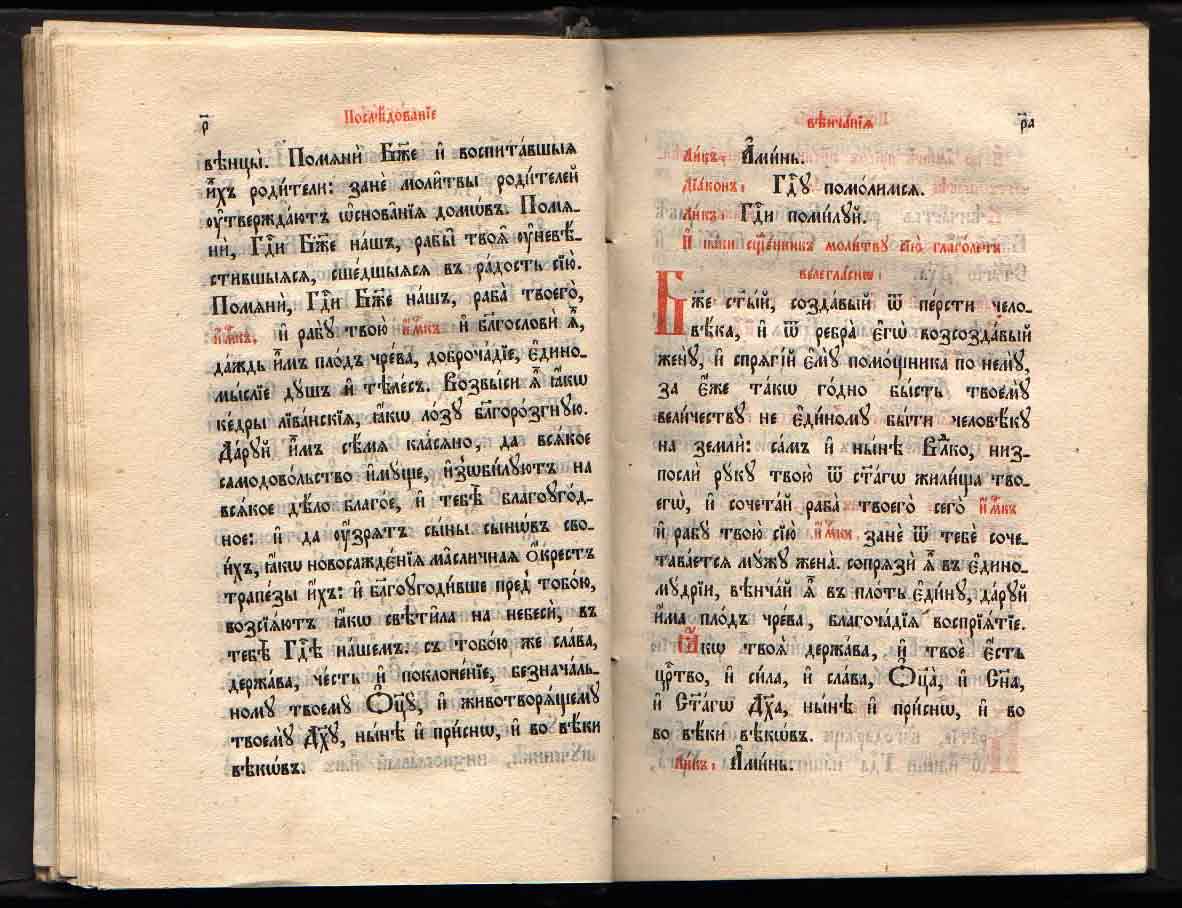 р҃
Послѣ́дованїе
вѣнцы̀. Помѧнѝ Бж҃е и҆ воспита́вшыѧ
и҆̀хъ роди́тели: занѐ моли̑твы роди́телей
оу҆твержда́ютъ ѡ҆снова̑нїѧ домѡ́въ. Помѧ-
нѝ, Гдⷭ҇и Бж҃е на́шъ, рабы̑ твоѧ̑ ᲂу҆невѣ́-
стившыѧсѧ, сше́дшыѧсѧ въ ра́дость сїю̀.
Помѧнѝ, Гдⷭ҇и Бж҃е на́шъ, раба̀ твоего̀,
и҆́м҃къ, и҆ рабꙋ̀ твою̀ и҆́м҃къ и҆ бл҃гословѝ ѧ҆̀,
да́ждь и҆̀мъ пло́дъ чре́ва, доброча́дїе, є҆дино-
мы́слїе дꙋ́шъ и҆ тѣле́съ. Возвы́си ѧ҆̀ ꙗ҆́кѡ
ке́дры лїва̑нскїѧ, ꙗ҆́кѡ лозꙋ̀ бл҃горо́згнꙋю.
Да́рꙋй и҆̀мъ сѣ́мѧ кла́сѧно, да всѧ́кое
самодово́льство и҆мꙋ́ще, и҆зѻби́лꙋютъ на
всѧ́кое дѣ́ло благо́е, и҆ тебѣ̀ благоꙋго́д-
ное: и҆ да оу҆́зрѧтъ сы́ны сынѡ́въ сво-
и́хъ, ꙗ҆́кѡ новосаждє́нїѧ ма̑сличнаѧ ѻ҆́крестъ
трапе́зы и҆́хъ: и҆ бл҃гоꙋгоди́вше пред̾ тобо́ю,
возсїѧ́ютъ ꙗ҆́кѡ свѣти̑ла на небесѝ, въ
тебѣ̀ Гдⷭ҇ѣ на́шемъ: съ тобо́ю же сла́ва,
держа́ва, че́сть и҆ поклоне́нїе, безнача́ль-
номꙋ твоемꙋ̀ Ѻ҆ц҃ꙋ̀, и҆ животворѧ́щемꙋ
твоемꙋ̀ Дх҃ꙋ, ны́нѣ и҆ при́снѡ, и҆ во вѣ́ки
вѣкѡ́въ.
вѣнча́нїѧ
р҃а
Ли́къ: А҆ми́нь.
Дїа́конъ: Гдⷭ҇ꙋ помо́лимсѧ.
Ли́къ: Гдⷭ҇и поми́лꙋй.
И҆ па́ки сщ҃е́нникъ моли́твꙋ сїю̀ глаго́летъ
велегла́снѡ:
Бж҃е ст҃ы́й, созда́вый ѿ пе́рсти чело-
вѣ́ка, и҆ ѿ ребра̀ є҆гѡ̀ возсозда́вый
женꙋ̀, и҆ спрѧгі́й є҆мꙋ̀ помо́щника по немꙋ̀,
за є҆́же та́кѡ го́дно бы́сть твоемꙋ̀
вели́чествꙋ не є҆ди́номꙋ бы́ти человѣ́кꙋ
на землѝ: са́мъ и҆ ны́нѣ Вл҃ко, низ-
послѝ рꙋ́кꙋ твою̀ ѿ ст҃а́гѡ жили́ща тво-
егѡ̀, и҆ сочета́й раба̀ твоего̀ сего̀ и҆́м҃къ
и҆ рабꙋ̀ твою̀ сїю̀ и҆́м҃къ, занѐ ѿ тебѐ соче-
тава́етсѧ мꙋ́жꙋ жена̀. сопрѧзѝ ѧ҆̀ въ є҆дино-
мꙋ́дрїи, вѣнча́й ѧ҆̀ въ пло́ть є҆ди́нꙋ, да́рꙋй
и҆́ма пло́дъ чре́ва, благоча́дїѧ воспрїѧ́тїе.
Ꙗ҆́кѡ твоѧ̀ держа́ва, и҆ твоѐ є҆́сть
црⷭ҇тво, и҆ си́ла, и҆ сла́ва, Ѻ҆ц҃а̀, и҆ Сн҃а,
и҆ Ст҃а́гѡ Дх҃а, ны́нѣ и҆ при́снѡ, и҆ во
во вѣ́ки вѣкѡ́въ.
Ли́къ: А҆ми́нь.